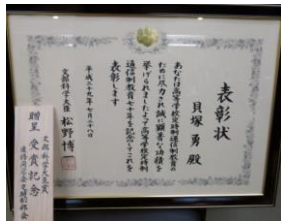 表彰状
貝塚 勇 殿
あなたは高等学校定時制通信制教育の
ために尽力され誠に顕著な功績を
挙げられましたよって高等学校定時制
通信制教育七十年を記念してこれを
表彰します
平成二十九年七月二十八日
文部科学大臣 松野博一
文部科学大臣賞
贈呈 受賞記念